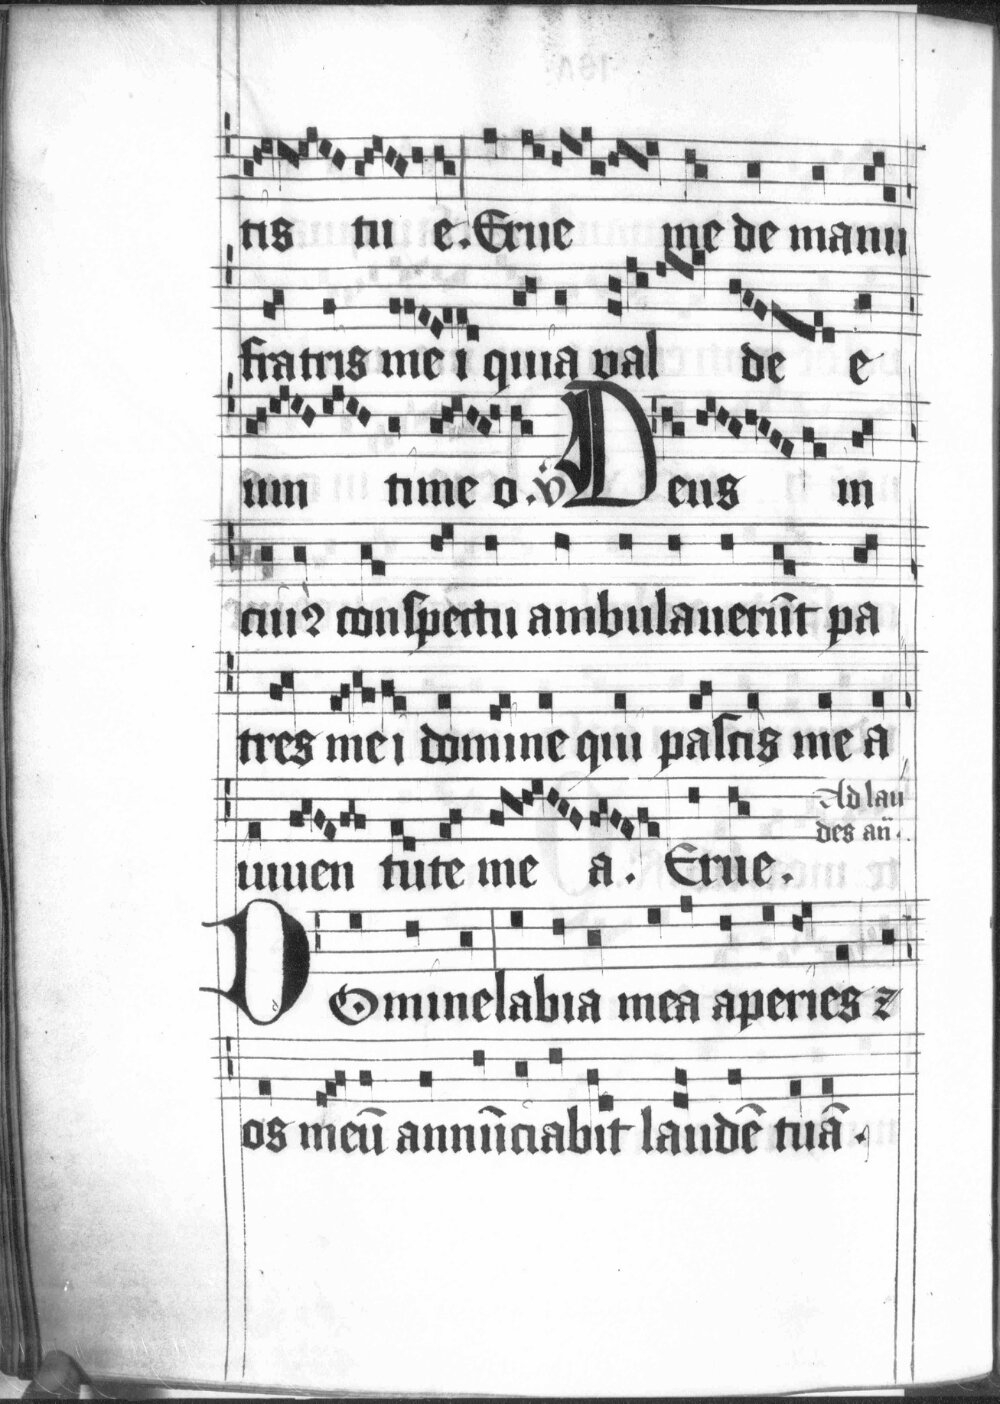 tis tu e. Erue me de manu
fratris me i quia val de e
um time o. v̇ Deus in
cui⁊ conspectu ambulauerūt pa
tres mei domine qui pascis me a
Ad lau
des añ.
iuuen tute me a. Erue.
Domine labia mea aperies ⁊
os meū annūciabit laudē tuā.